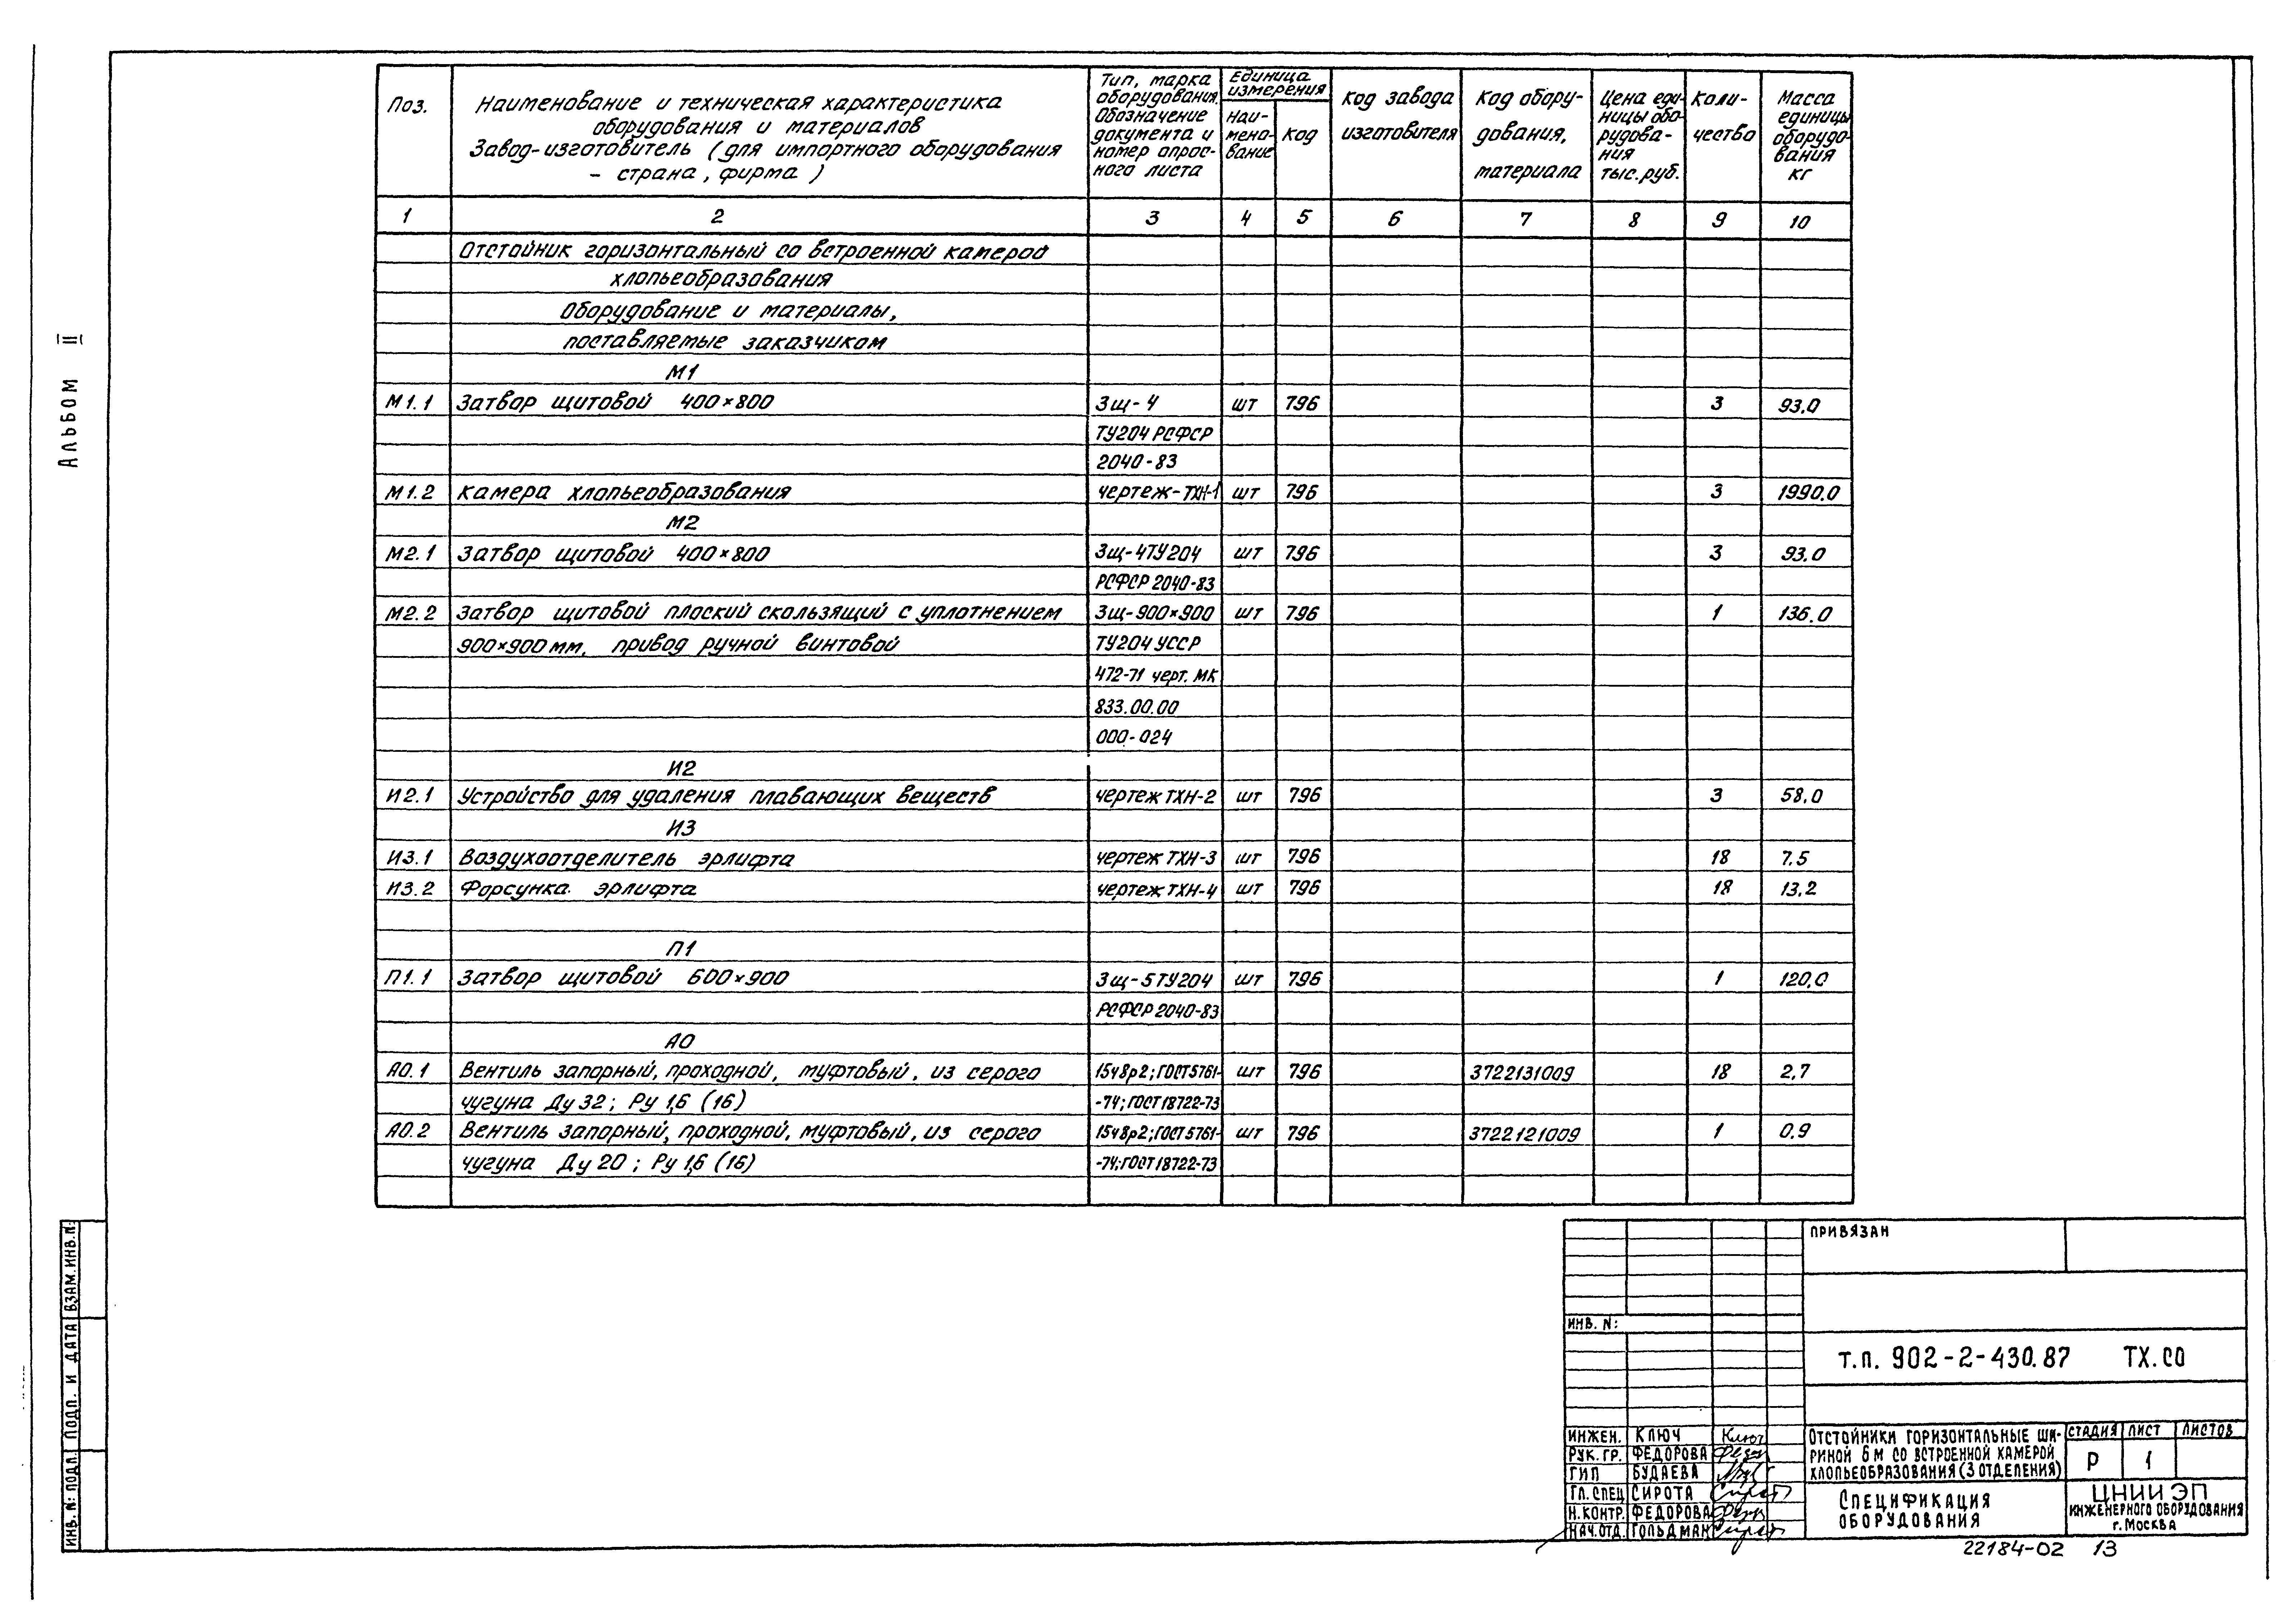 Альбом II
Поз.
Наименование и техническая характеристика
оборудования и материалов
Завод-изготовитель (для импортного оборудования
- страна, фирма)
Тип, марка
оборудования.
Обозначение
документа и
номер опрос-
ного листа
Единица
измерения
Наи-
мено-
вание
Код
Код завода
изготовителя
Код обору-
дования,
материала
Цена еди-
ницы обо-
рудова-
ния
тыс.руб.
Коли-
чество
Масса
единицы
оборудо-
вания
кг
1 2 3 4 5 6 7 8 9 10
Отстойник горизонтальный со встроенной камерой
хлопьеобразования
Оборудование и материалы,
поставляемые заказчиком
М1
М1.1 Затвор щитовой 400×800 Зщ-4 шт 796 3 93,0
ТУ204 РСФСР
2040-83
М1.2 Камера хлопьеобразования чертеж-ТХН-1 шт 796 3 1990,0
М2
М2.1 Затвор щитовой 400×800 Зщ-4ТУ204 шт 796 3 93,0
РСФСР 2040-83
М2.2 Затвор щитовой плоский скользящий с уплотнением Зщ-900×900 шт 796 1 136,0
900×900 мм, привод ручной винтовой ТУ204 УССР
472-71 черт. МК
833.00.00
000-024
И2
И2.1 Устройство для удаления плавающих веществ чертеж ТХН-2 шт 796 3 58,0
И3
И3.1 Воздухоотделитель эрлифта чертеж ТХН-3 шт 796 18 7,5
И3.2 Форсунка эрлифта чертеж ТХН-4 шт 796 18 13,2
П1
П1.1 Затвор щитовой 600×900 Зщ-5ТУ204 шт 796 1 120,0
РСФСР 2040-83
АО
АО.1 Вентиль запорный, проходной, муфтовый, из серого 15ч8р2; ГОСТ5761- шт 796 3722131009 18 2,7
чугуна Ду 32; Ру 1,6 (16) -74; ГОСТ18722-73
АО.2 Вентиль запорный, проходной, муфтовый, из серого 15ч8р2; ГОСТ5761- шт 796 3722121009 1 0,9
чугуна Ду 20; Ру 1,6 (16) -74; ГОСТ18722-73
ИНВ. N: ПОДЛ. ПОДП. И ДАТА ВЗАМ. ИНВ. N:
ПРИВЯЗАН
ИНВ. N:
т.п. 902-2-430.87 ТХ.СО
ИНЖЕН. КЛЮЧ Ключ
РУК. ГР. ФЕДОРОВА
ГИП БУДАЕВА
ГЛ. СПЕЦ СИРОТА
Н.КОНТР. ФЕДОРОВА
НАЧ.ОТД. ГОЛЬДМАН
ОТСТОЙНИКИ ГОРИЗОНТАЛЬНЫЕ ШИ-
РИНОЙ 6 М СО ВСТРОЕННОЙ КАМЕРОЙ
ХЛОПЬЕОБРАЗОВАНИЯ (3 ОТДЕЛЕНИЯ)
СТАДИЯ ЛИСТ ЛИСТОВ
Р 1
СПЕЦИФИКАЦИЯ
ОБОРУДОВАНИЯ
ЦНИИЭП
ИНЖЕНЕРНОГО ОБОРУДОВАНИЯ
г. МОСКВА
22184-02 13